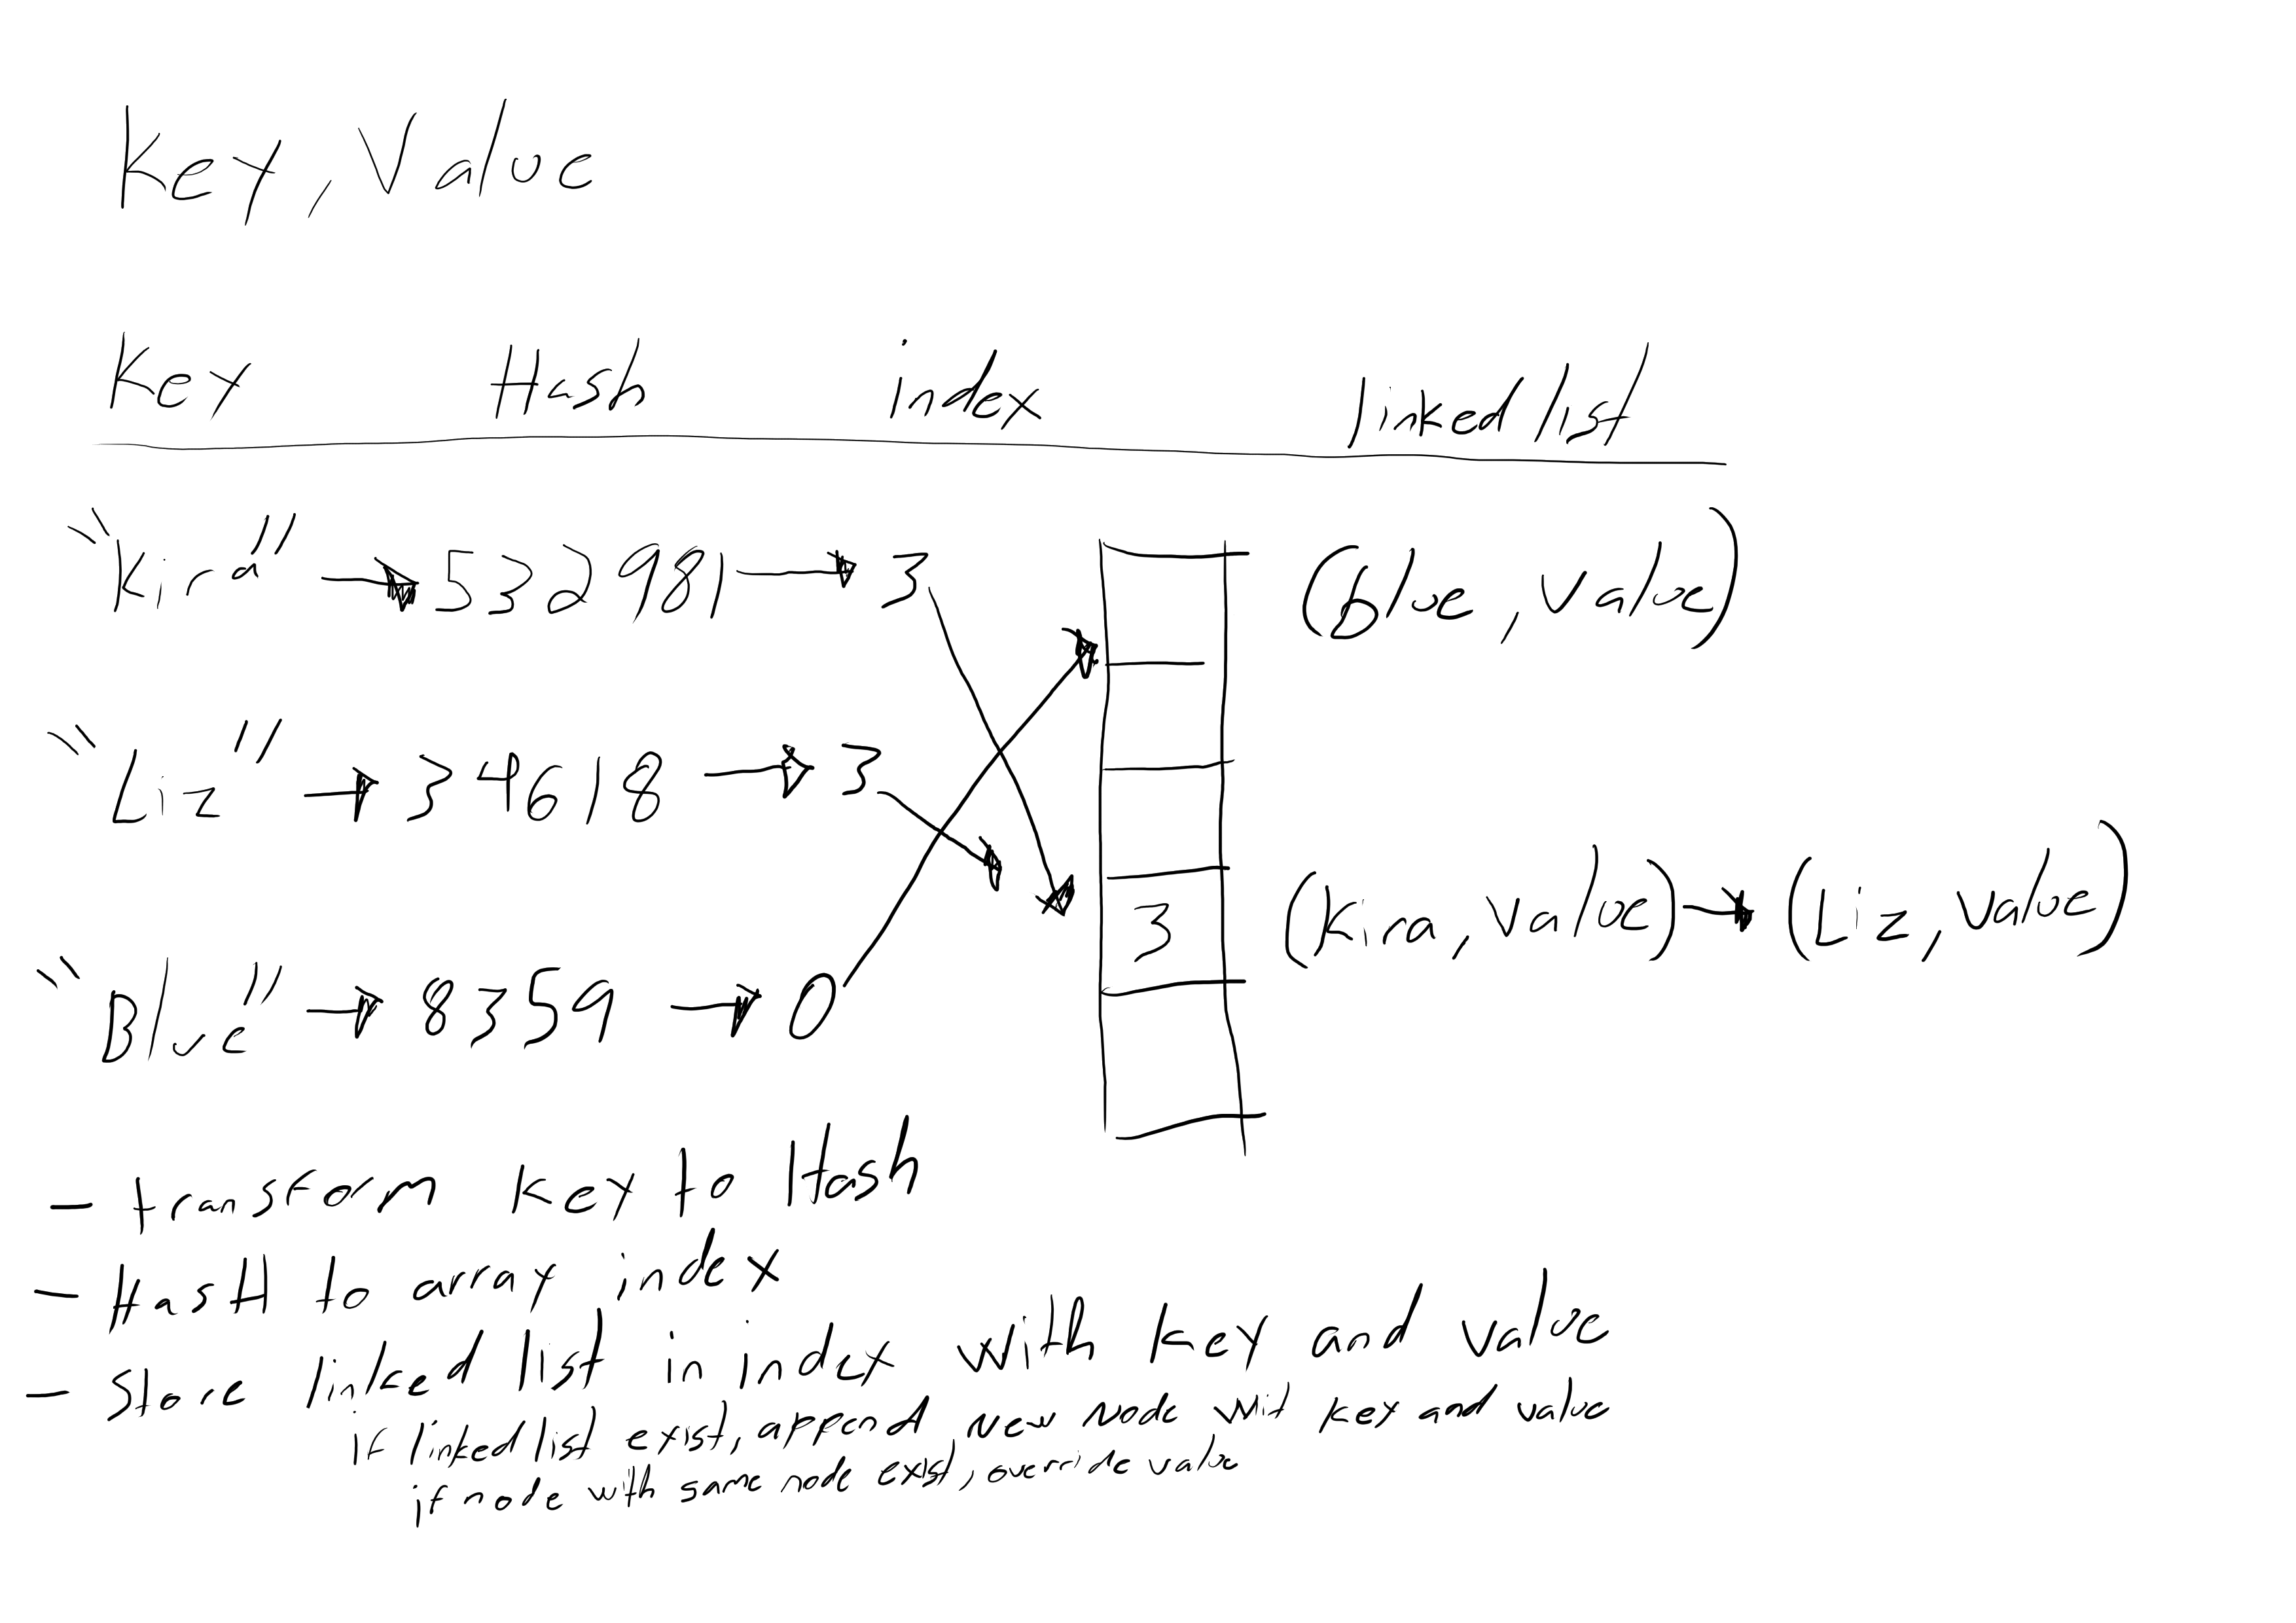 Key, Value
Key Hash index linked list
"Kira" → 532981 → 3 (blue, value)
"Liz" → 34618 → 3
3 (Kira, value) → (Liz, value)
"Blue" → 8359 → 0
- transform key to Hash
- HasH to array index
- Store linked list in index with key and value
if linked list exist, append new node wit key and value
if node with same node exist, override value